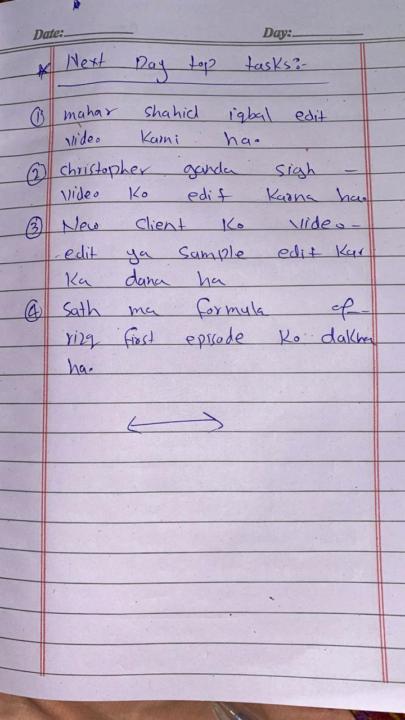 Date:
Day:
Next Day top tasks:-
① mahar shahid iqbal edit
video Karni ha.
② christopher ganda sigh -
video Ko edit Karna ha.
③ New Client Ko Video -
edit ya Sample edit Kar
Ka dana ha
④ Sath ma formula of -
rizq first episode Ko dakhna
ha.